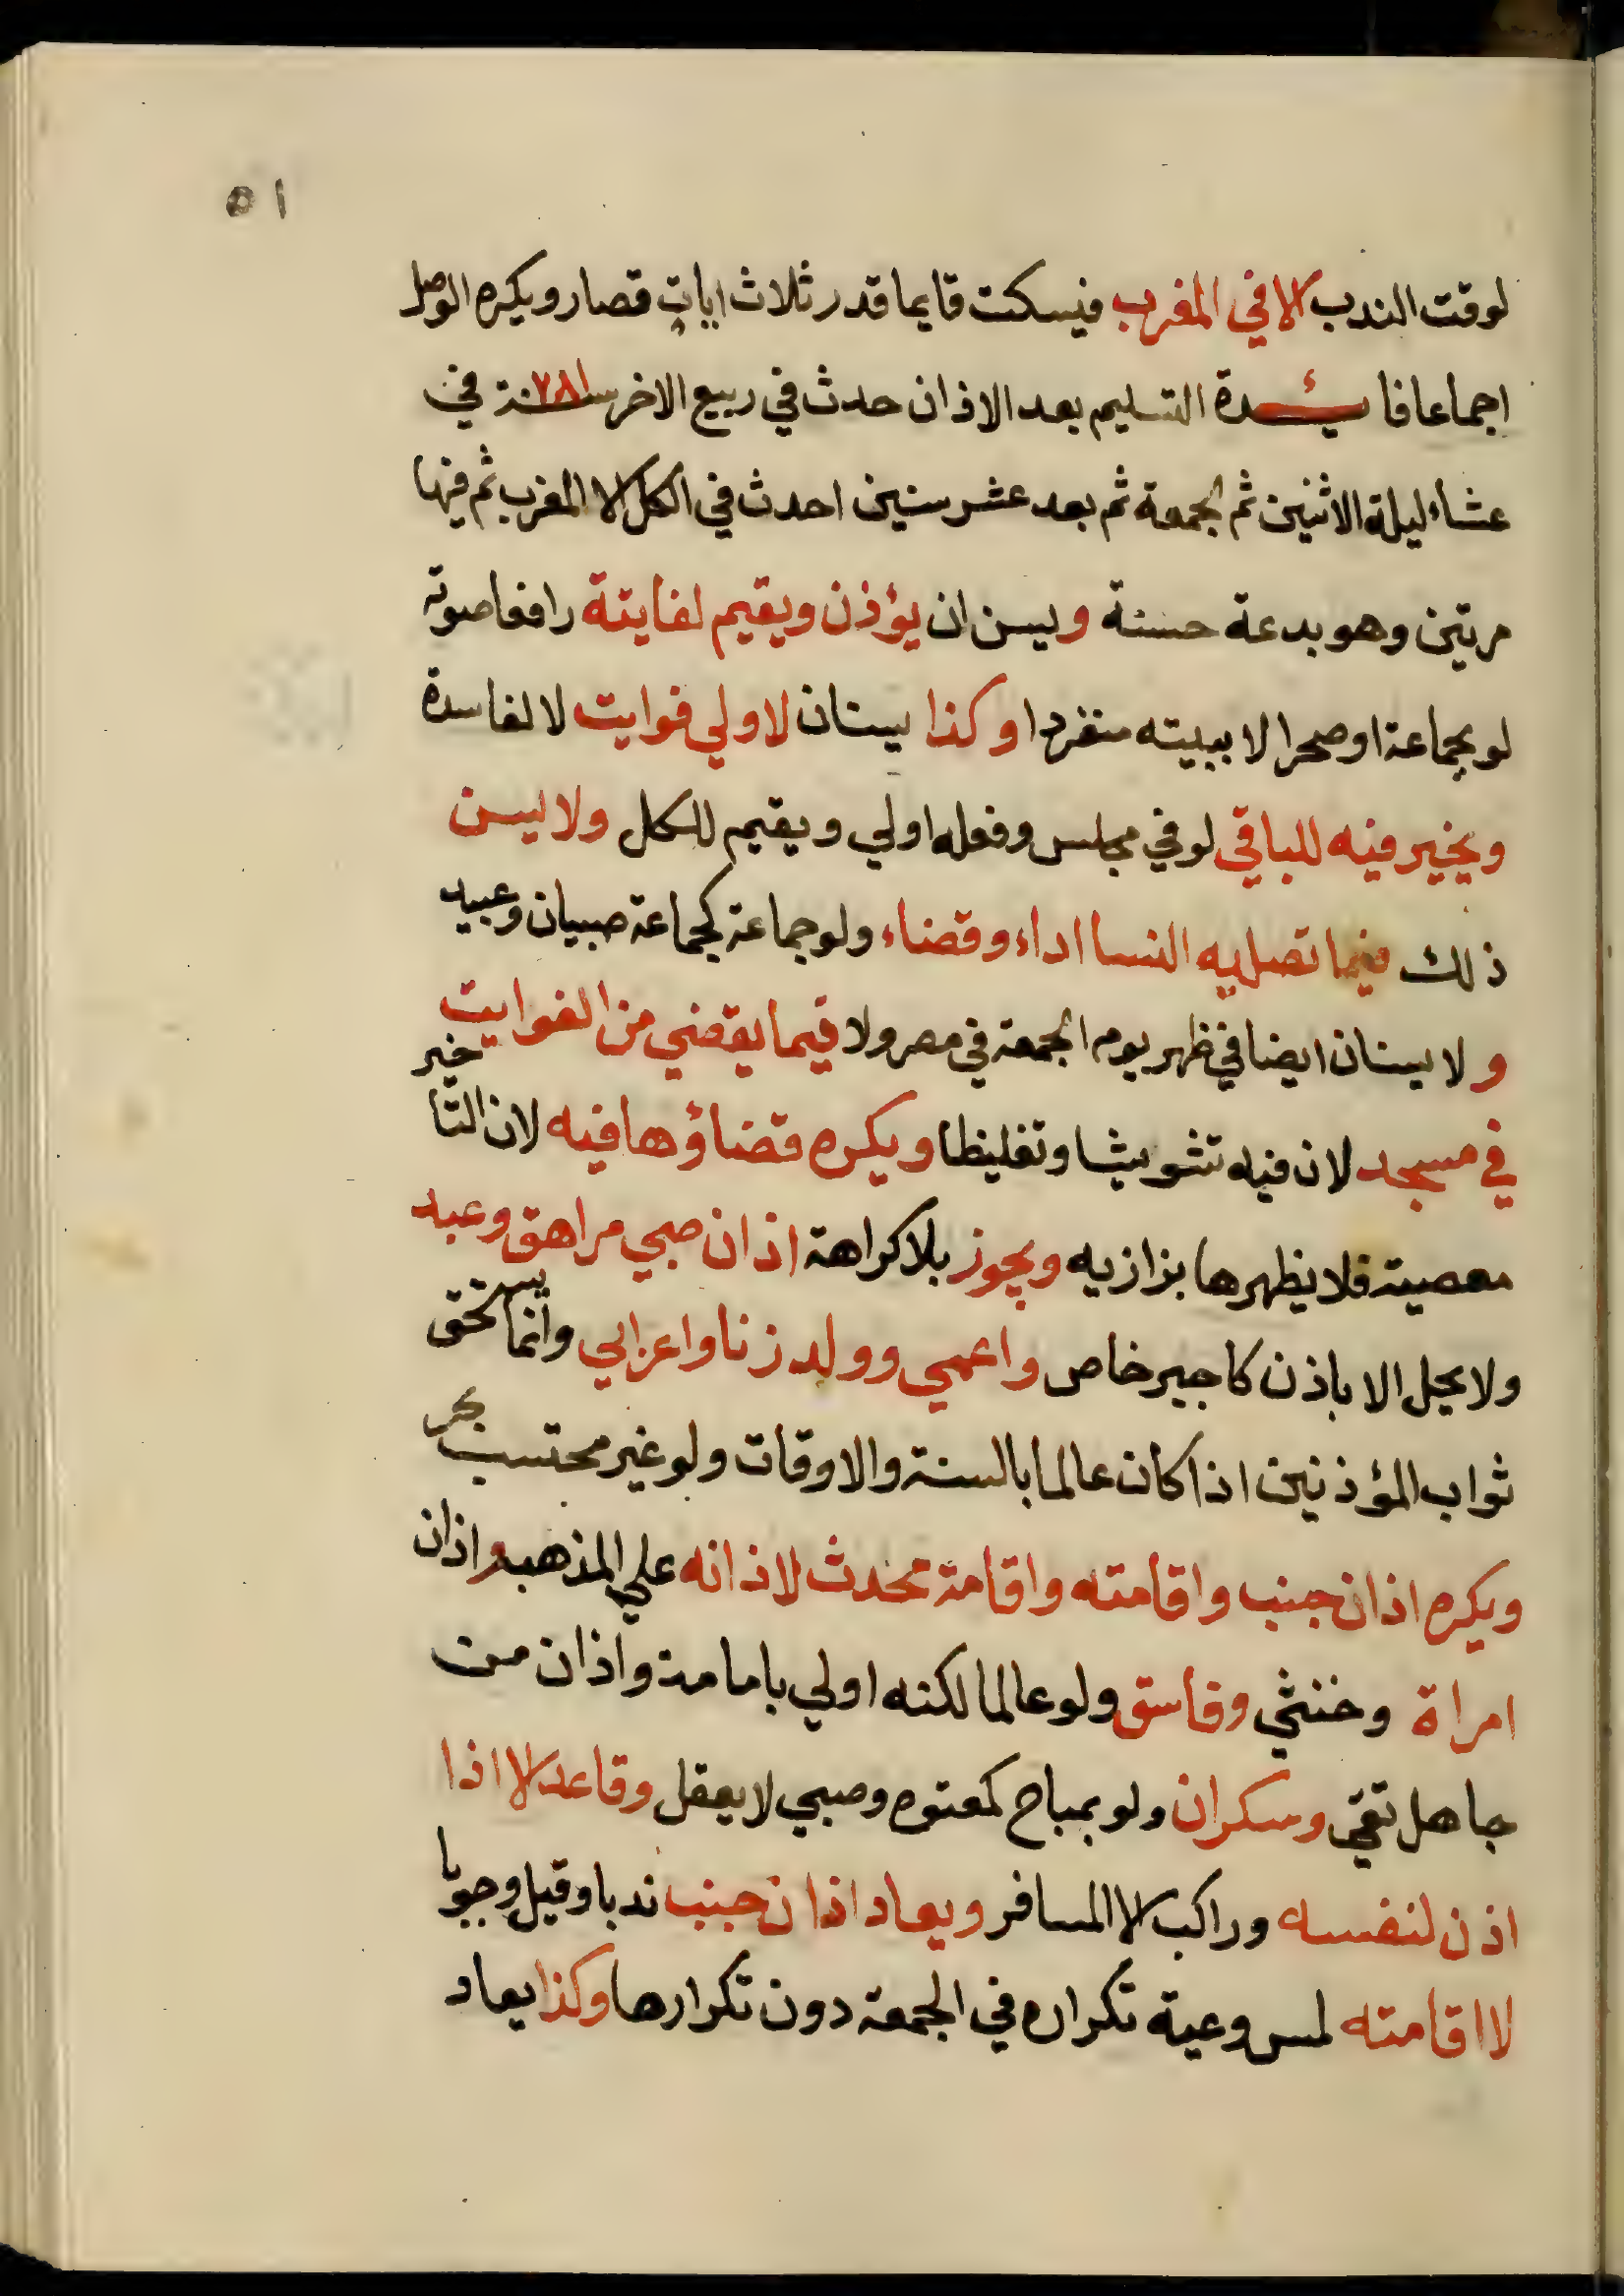 ٥١
لوقت الندب الا في المغرب فيسكت قايما قدر ثلاث ايات قصار ويكره الوصل
اجماعا فايئدة التسليم بعد الاذان حدث في ربيع الاخر سنة ٧٨١ في
عشاء ليلة الاثنين ثم الجمعة ثم بعد عشر سنين احدث في الكل الا المغرب ثم فيها
مرتين وهو بدعة حسنة ويسن ان يؤذن ويقيم لفايتة رافعا صوته
لو بجماعة او صحرا لا ببيته منفردا وكذا يسنان لاولي فوايت لا لفاسدة
ويخير فيه للباقي لو في مجلس وفعله اولي ويقيم للكل ولا يسن
ذلك فيما تصليه النسا اداء وقضاء ولو جماعة كجماعة صبيان وعبيد
ولا يسنان ايضا في ظهر يوم الجمعة في مصر ولا فيما يقضي من الفوايت
في مسجد لان فيه تشويشا وتغليظا ويكره قضاؤها فيه لان التاخير
معصية فلا يظهرها بزازيه ويجوز بلا كراهة اذان صبي مراهق وعبد
ولا يحل الا باذن كاجير خاص واعمي وولد زنا واعرابي وانما يستحق
ثواب المؤذنين اذا كان عالما بالسنة والاوقات ولو غير محتسب بحر
ويكره اذان جنب واقامته واقامة محدث لا اذانه علي المذهب واذان
امراة وخنثي وفاسق ولو عالما لكنه اولي بامامة واذان من
جاهل تقي وسكران ولو بمباح كمعتوه وصبي لا يعقل وقاعد الا اذا
اذن لنفسه وراكب الا المسافر ويعاد اذان جنب ندبا وقيل وجوبا
لا اقامته لمسروعية تكراره في الجمعة دون تكرارها وكذا يعاد